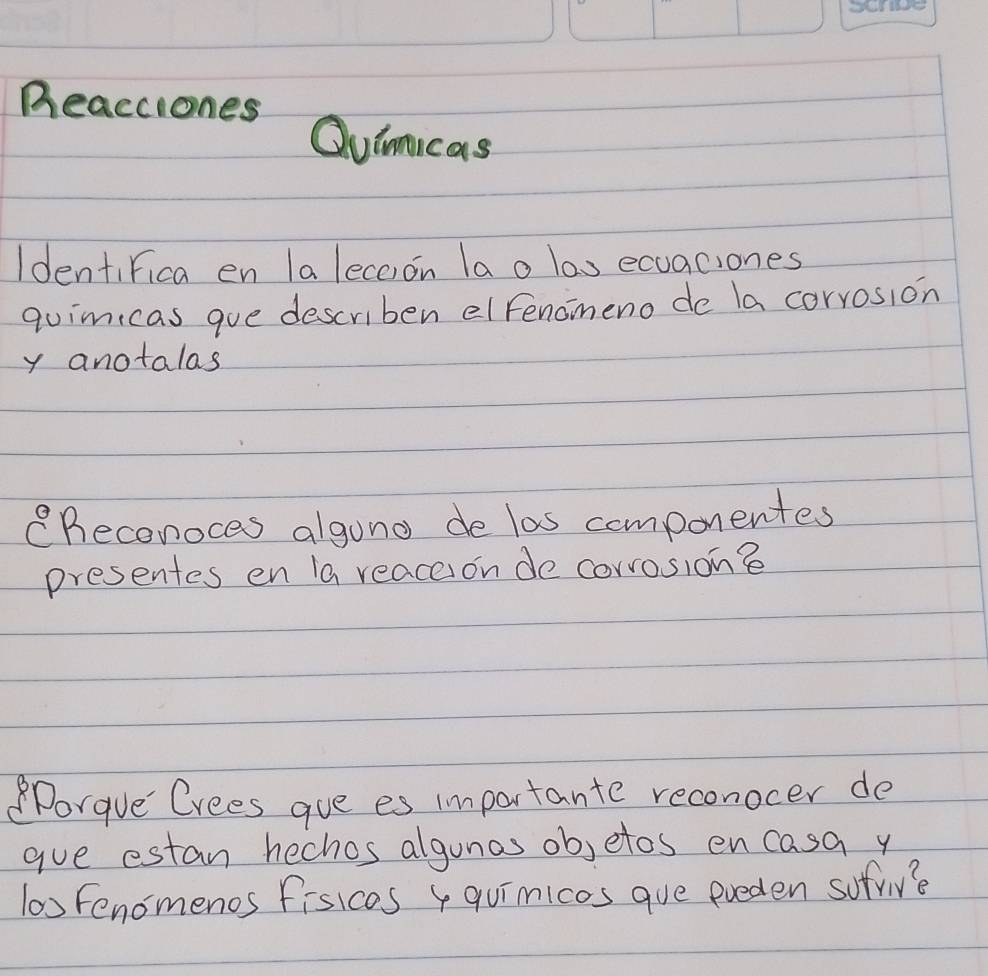 Scribe
Reacciones
Químicas
Identifica en la lección la o las ecuaciones
químicas que describen el fenómeno de la corrosión
y anotalas
¿Reconoces alguno de los componentes
presentes en la reacción de corrosión?
¿Porqué Crees que es importante reconocer de
que estan hechos algunos objetos en casa y
los fenómenos físicos y químicos que pueden sufrir?